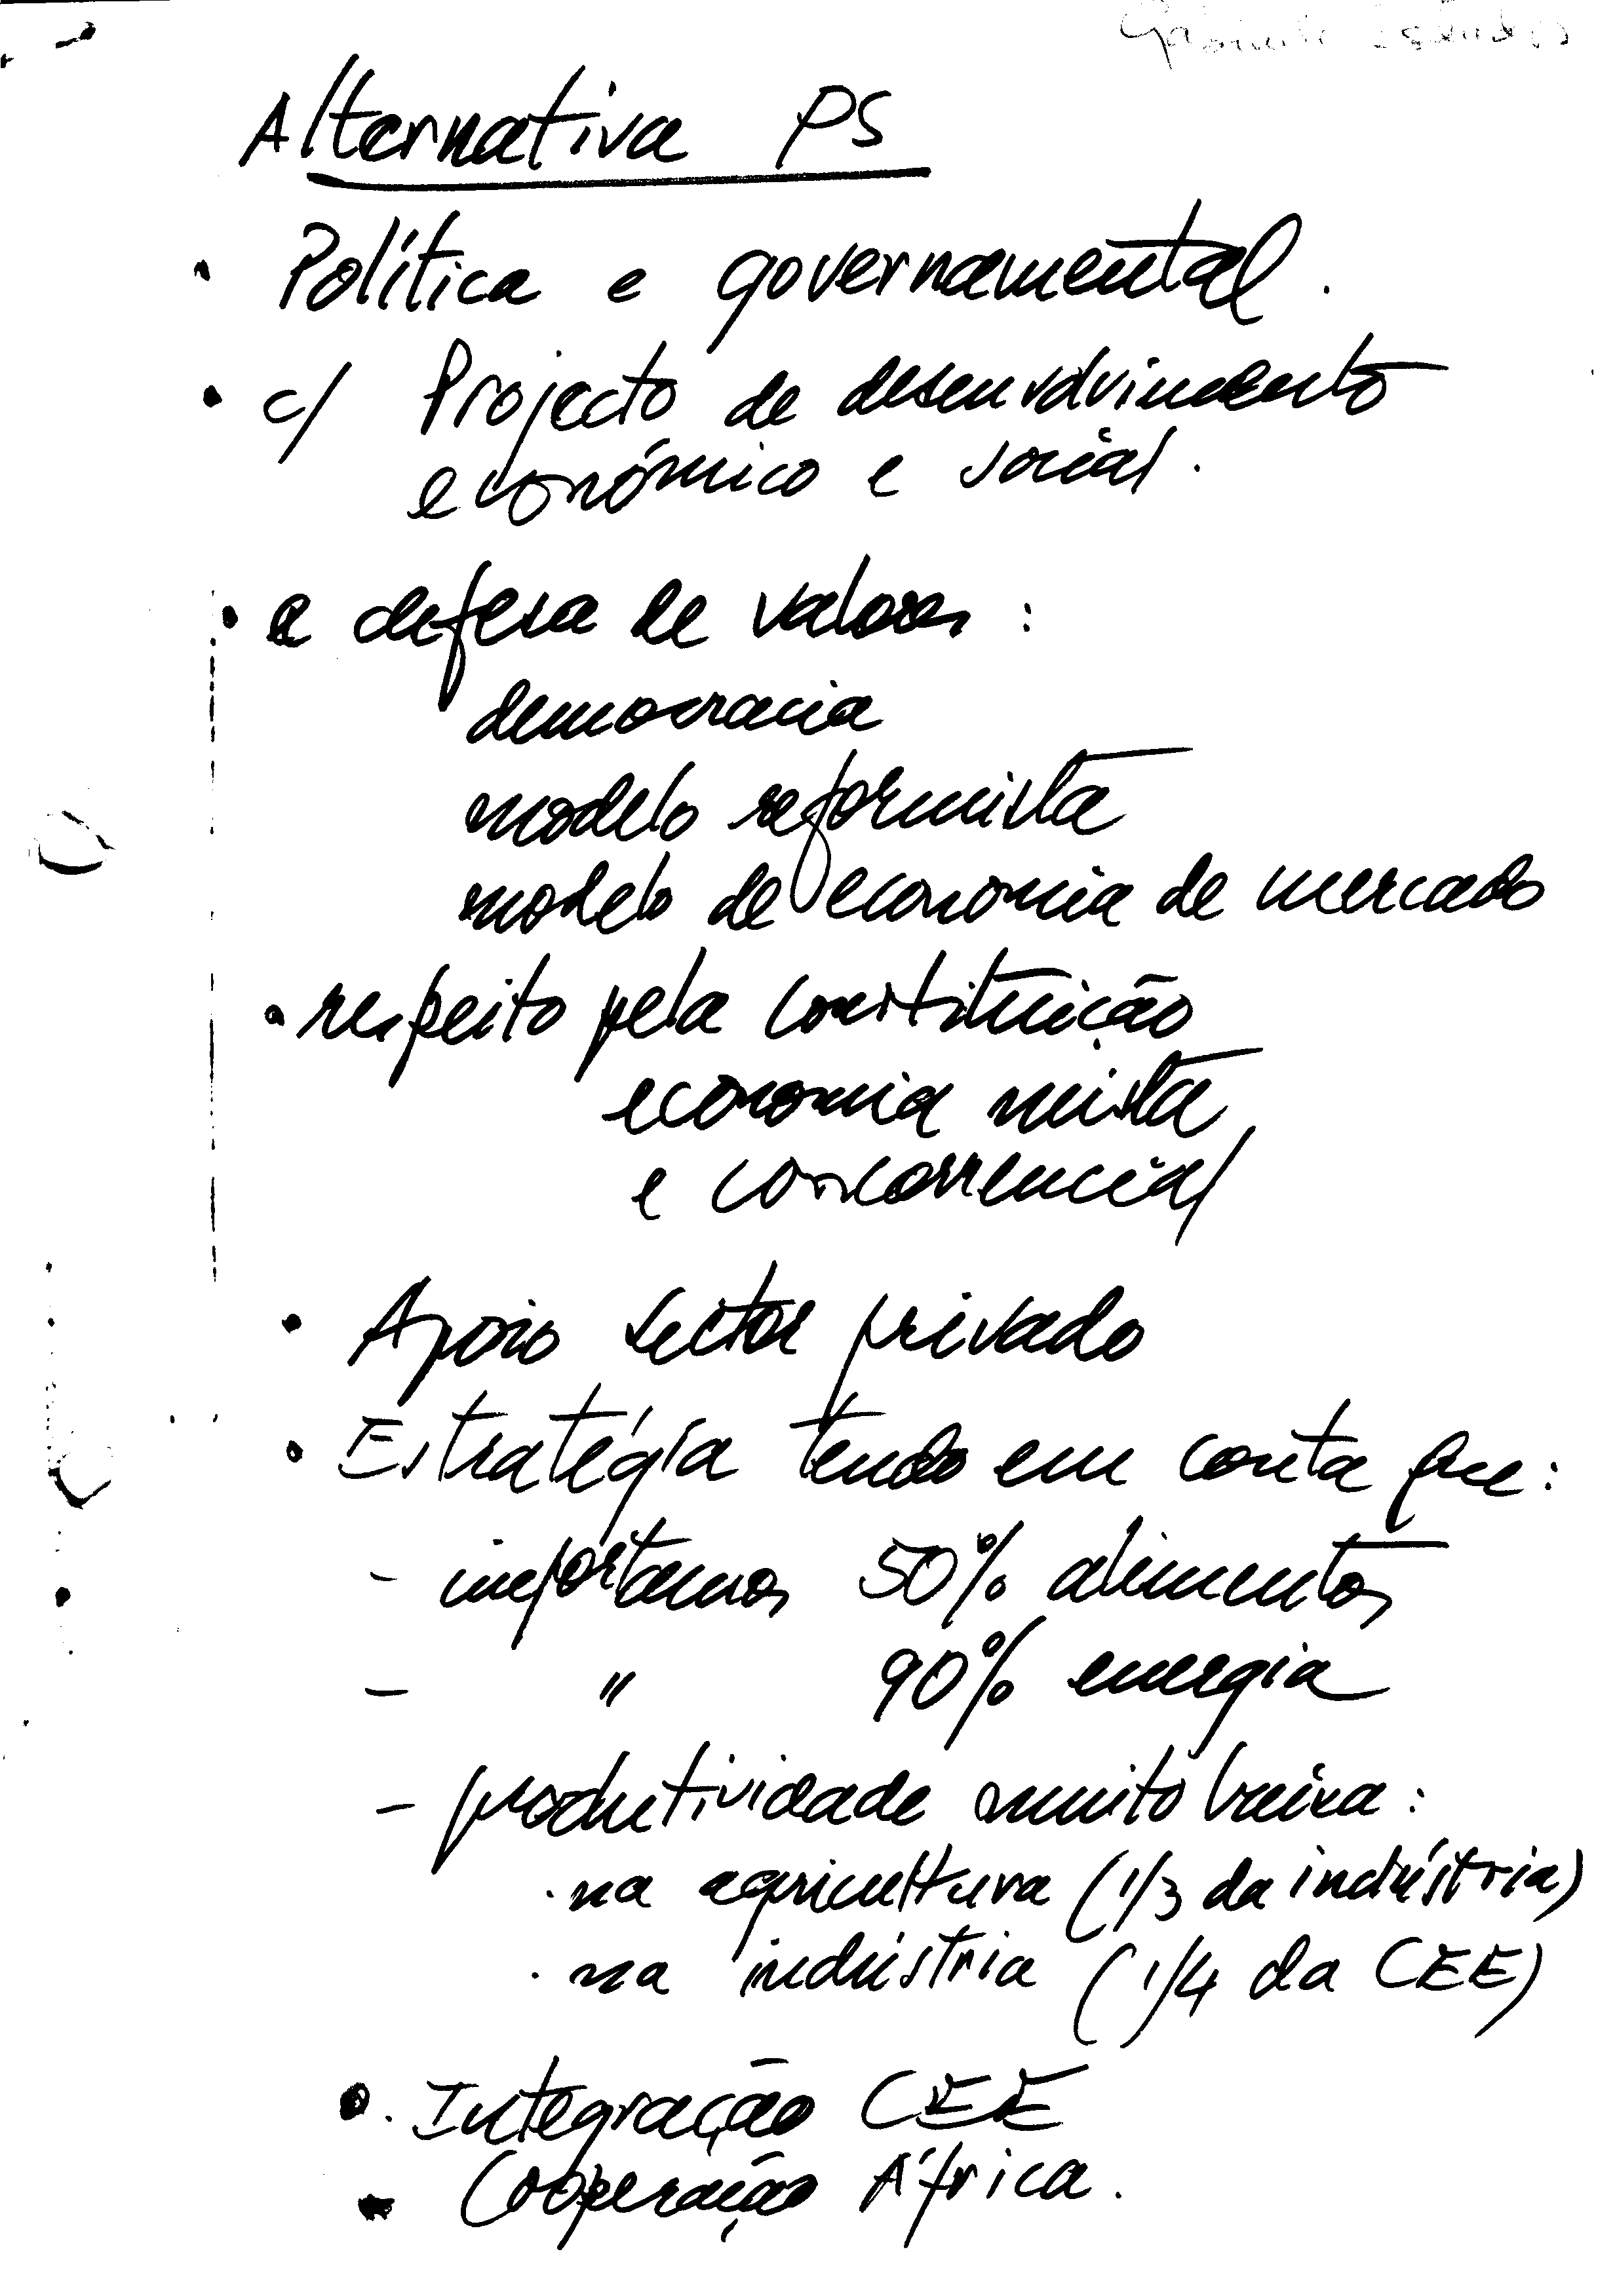 Alternativa PS
• Política e governamental.
• c/ Projecto de desenvolvimento
económico e social.
• e defesa de valores:
democracia
modelo reformista
modelo de economia de mercado
• respeito pela Constituição
economia mista
e concorrencial
• Apoio sector privado
• Estratégia tendo em conta que:
- importamos 50% alimentos
- " 90% energia
- produtividade muito baixa:
· na agricultura (1/3 da indústria)
· na indústria (1/4 da CEE)
• Integração CEE
• Cooperação África.